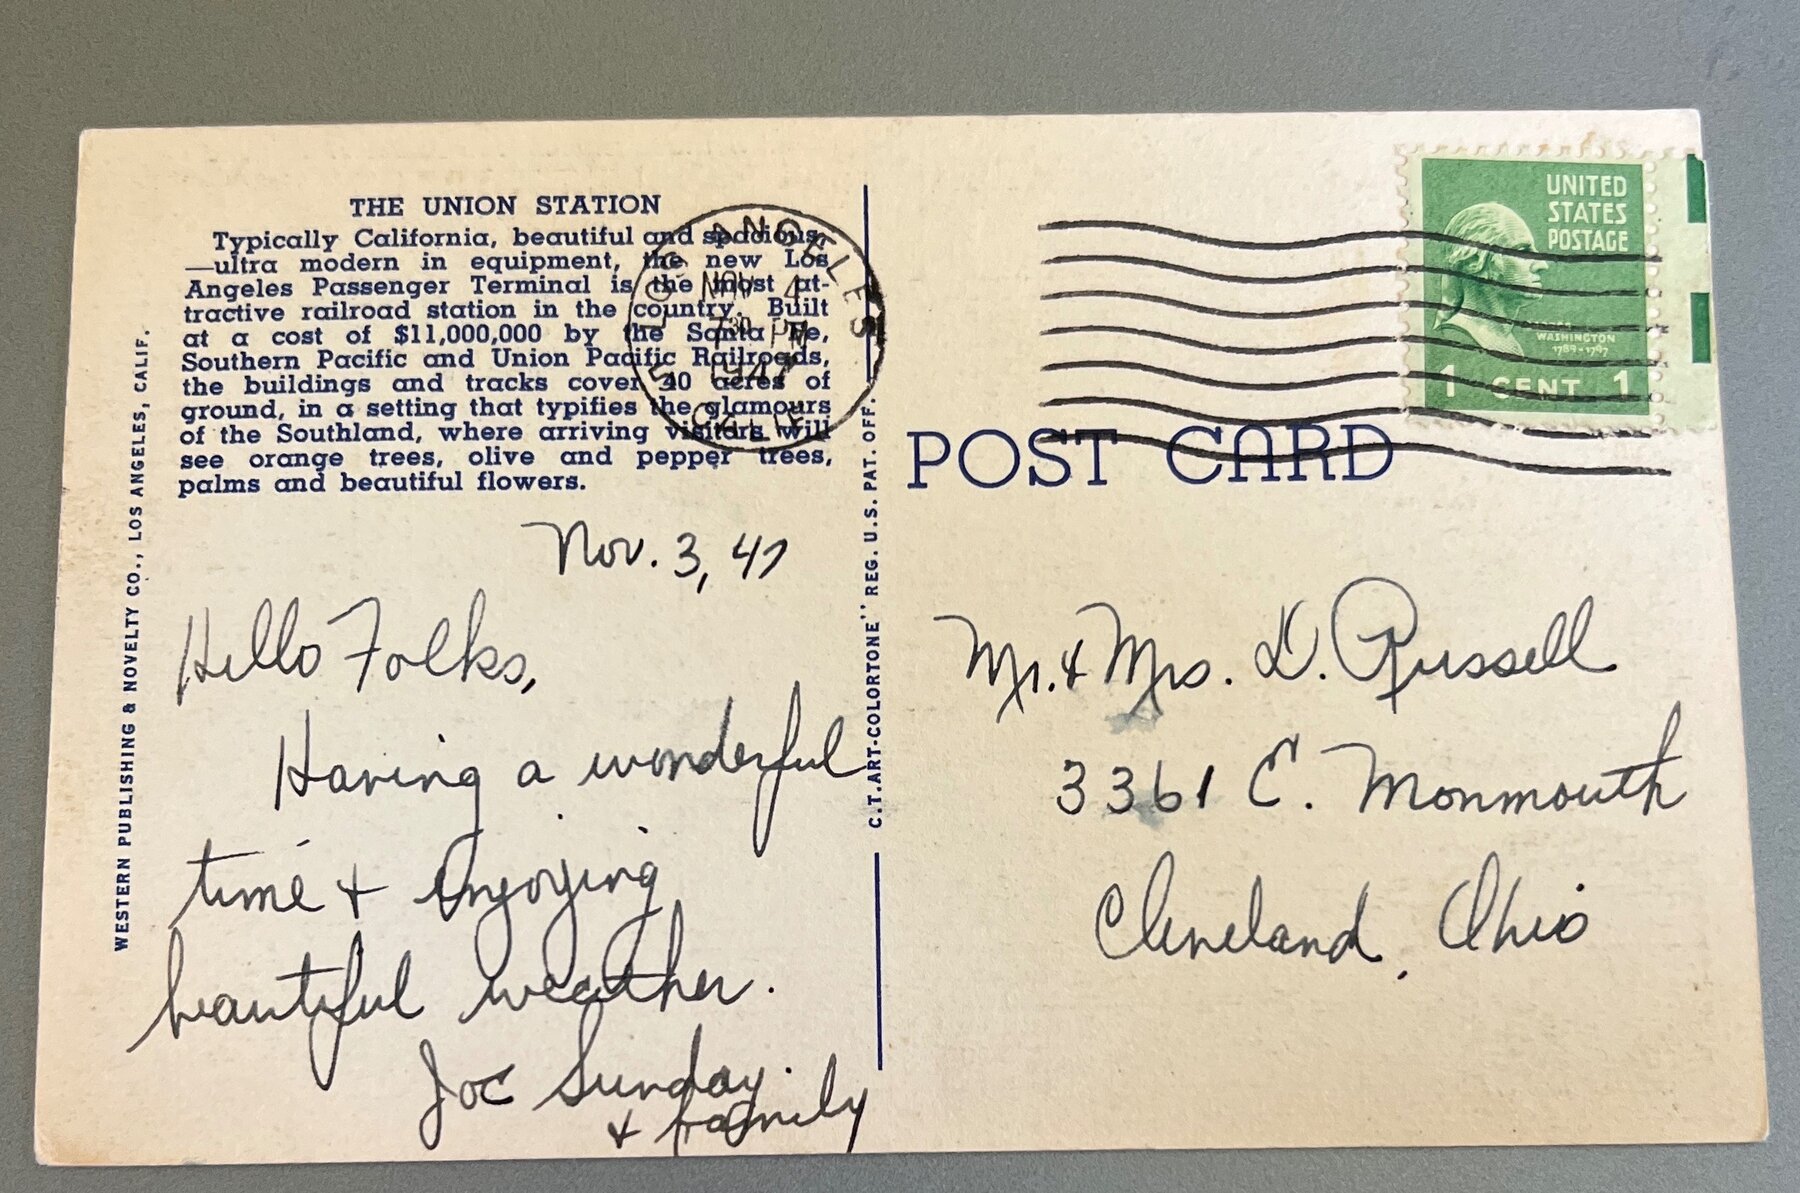 THE UNION STATION
Typically California, beautiful and spacious
—ultra modern in equipment, the new Los
Angeles Passenger Terminal is the most at-
tractive railroad station in the country. Built
at a cost of $11,000,000 by the Santa Fe,
Southern Pacific and Union Pacific Railroads,
the buildings and tracks cover 40 acres of
ground, in a setting that typifies the glamours
of the Southland, where arriving visitors will
see orange trees, olive and pepper trees,
palms and beautiful flowers.
WESTERN PUBLISHING & NOVELTY CO., LOS ANGELES, CALIF.
Nov. 3, 47
Hello Folks,
Having a wonderful
time + enjoying
beautiful weather.
Joe Sunday
+ family
C.T. ART-COLORTONE" REG. U.S. PAT. OFF.
LOS ANGELES
NOV 4
7 30 PM
1947
CALIF.
UNITED
STATES
POSTAGE
WASHINGTON
1789-1797
1 CENT 1
POST CARD
Mr. & Mrs. D. Russell
3361 E. Monmouth
Cleveland, Ohio